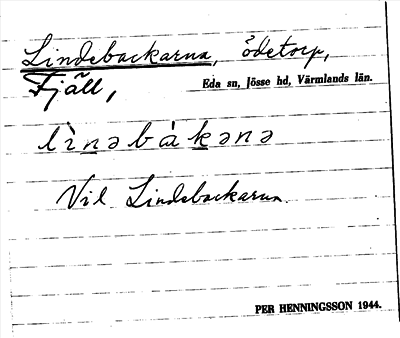 Lindebackarna, ödetorp,
Fjäll, Eda sn, Jösse hd, Värmlands län.
lìnəbàkənə
Vil Lindebackarna.
PER HENNINGSSON 1944.